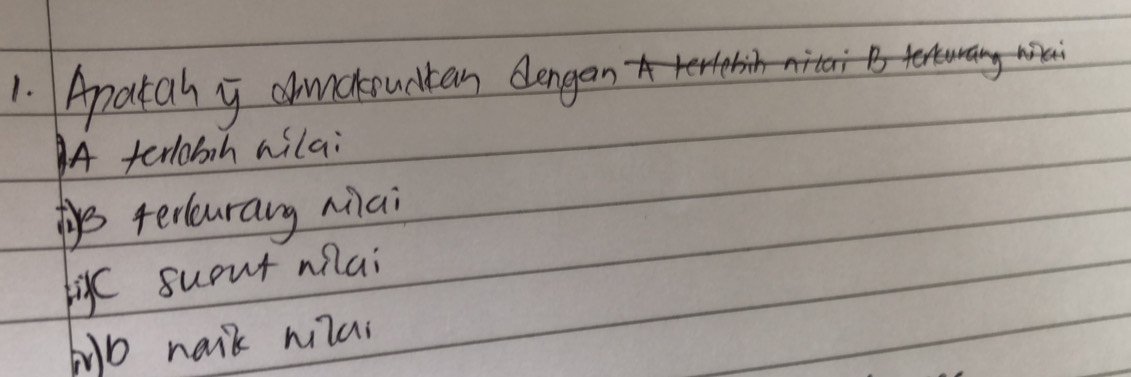 1. Apakah yg dimaksudkan dengan A terlebih nilai B terkurang nilai
i) A terlebih nilai
ii) B terkurang nilai
iii) C susut nilai
iv) D naik nilai